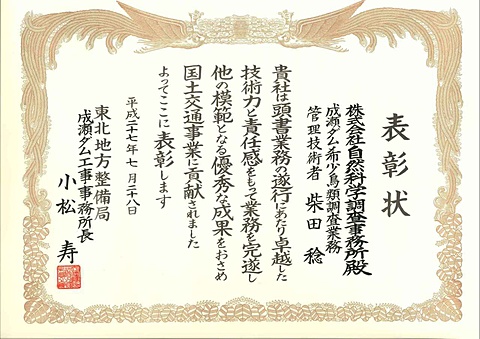 表彰状
株式会社自然科学調査事務所殿
成瀬ダム希少鳥類調査業務
管理技術者 柴田 稔
貴社は頭書業務の遂行にあたり卓越した
技術力と責任感をもって業務を完遂し
他の模範となる優秀な成果をおさめ
国土交通事業に貢献されました
よってここに表彰します
平成二十七年七月二十八日
東北地方整備局
成瀬ダム工事事務所長
小松 寿